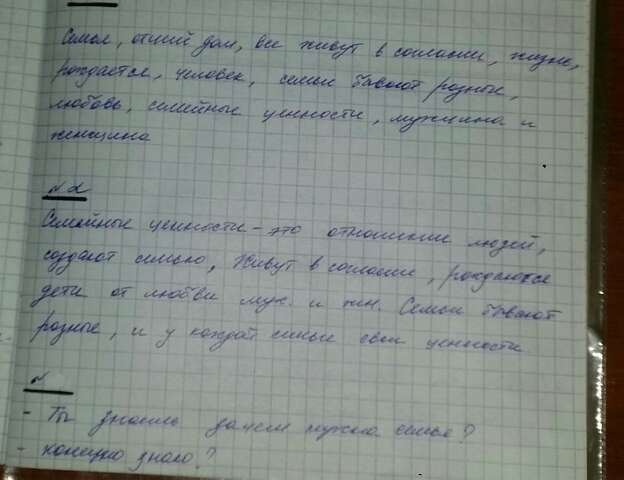 Семья, отчий дом, все живут в согласии, жизнь,
рождается, человек, семьи бывают разные,
любовь, семейные ценности, мужчина и
женщина
№2
Семейные ценности - это отношения людей,
создают семью, живут в согласии, рождаются
дети от любви муж. и жн. Семьи бывают
разные, и у каждой семьи свои ценности
№
- Ты знаешь зачем нужна семья?
- конечно знаю?